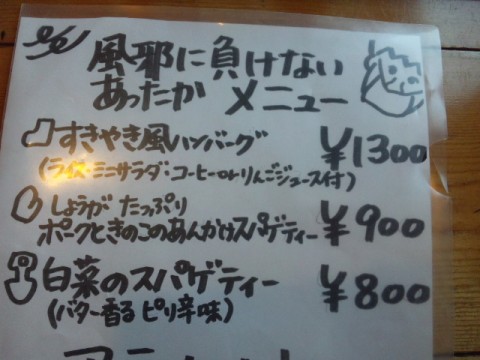 風邪に負けない
あったか メニュー
すきやき風ハンバーグ ¥1300
(ライス・ミニサラダ・コーヒーorりんごジュース付)
しょうが たっぷり
ポークときのこのあんかけスパゲティー ¥900
白菜のスパゲティー ¥800
(バター香る ピリ辛味)